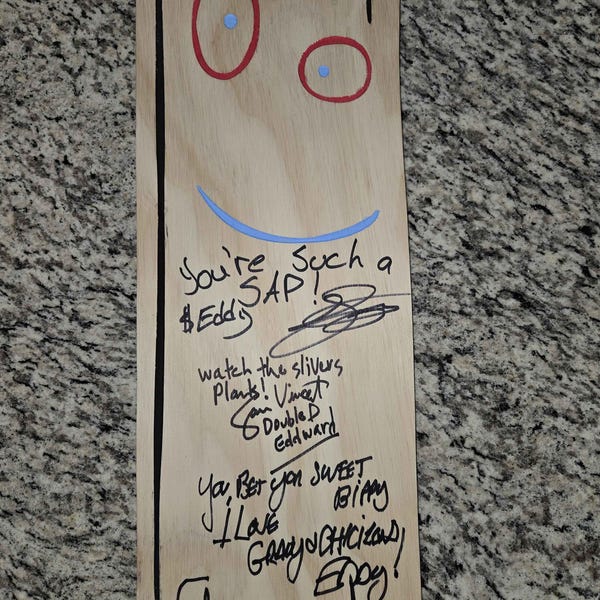 You're Such a
SAP!
$Eddy
watch the slivers
Plank!
Sam Vincent
Double D
Eddward
You BET you SWEET
BIPPY
I LOVE
GRAVY & CHICKENS!
Enjoy!